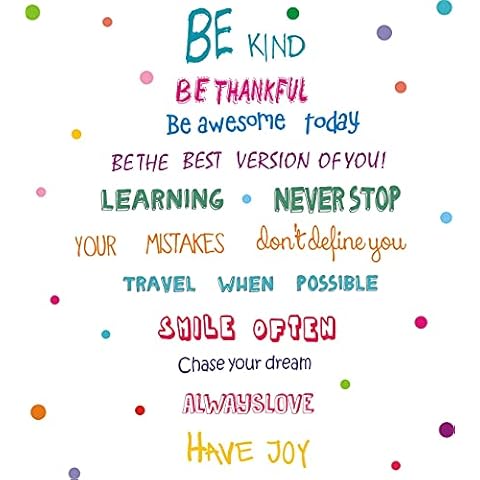 BE KIND
BE THANKFUL
Be awesome today
BE THE BEST VERSION OF YOU!
LEARNING NEVER STOP
YOUR MISTAKES don't define you
TRAVEL WHEN POSSIBLE
SMILE OFTEN
Chase your dream
ALWAYSLOVE
HAVE JOY